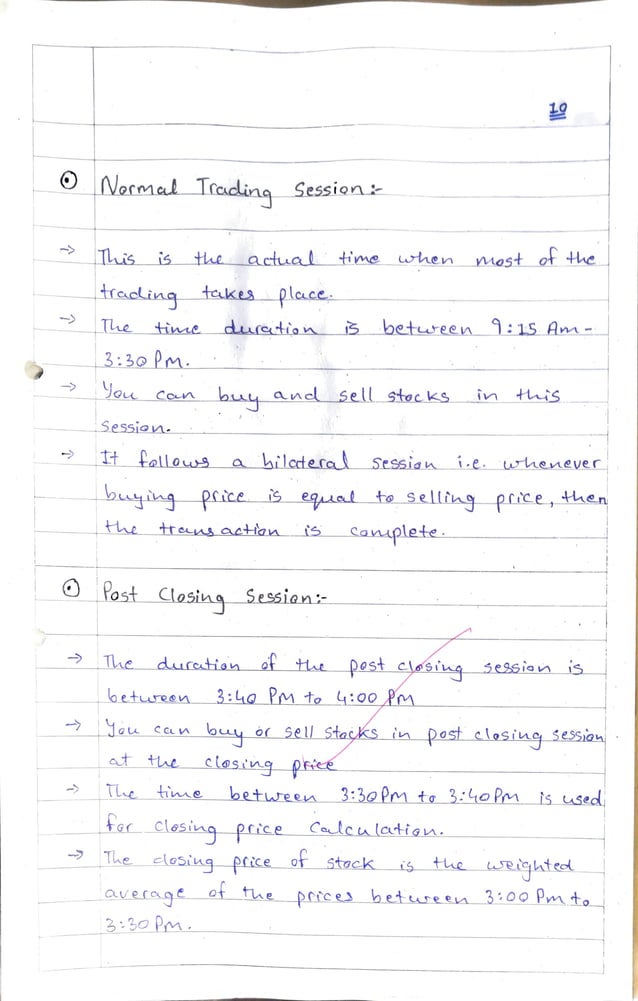 10
⊙ Normal Trading Session:-
→ This is the actual time when most of the
trading takes place.
→ The time duration is between 9:15 Am -
3:30 Pm.
→ You can buy and sell stocks in this
Session.
→ It follows a bilateral session i.e. whenever
buying price is equal to selling price, then
the transaction is complete.
⊙ Post Closing Session:-
→ The duration of the post closing session is
between 3:40 PM to 4:00 PM
→ You can buy or sell stocks in post closing session
at the closing price
→ The time between 3:30 PM to 3:40 PM is used
for closing price Calculation.
→ The closing price of stock is the weighted
average of the prices between 3:00 Pm to
3:30 PM.